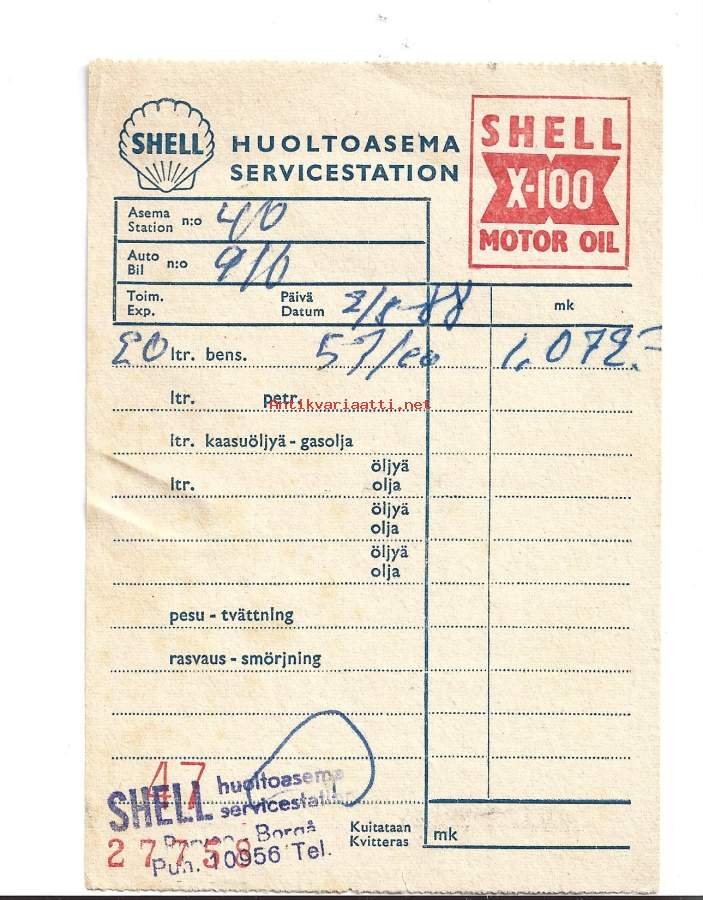 SHELL
HUOLTOASEMA
SERVICESTATION
SHELL
X-100
MOTOR OIL
Asema
Station n:o 40
Auto
Bil n:o
Toim.
Exp.
Päivä
Datum
mk
ltr. bens. 1,072.-
ltr. petr.
Antikvariaatti.net
ltr. kaasuöljyä - gasolja
öljyä
ltr. olja
öljyä
olja
öljyä
olja
pesu - tvättning
rasvaus - smörjning
47
SHELL huoltoasema
servicestation
Borgå
27758
Puh. 10956 Tel.
Kuitataan
Kvitteras
mk